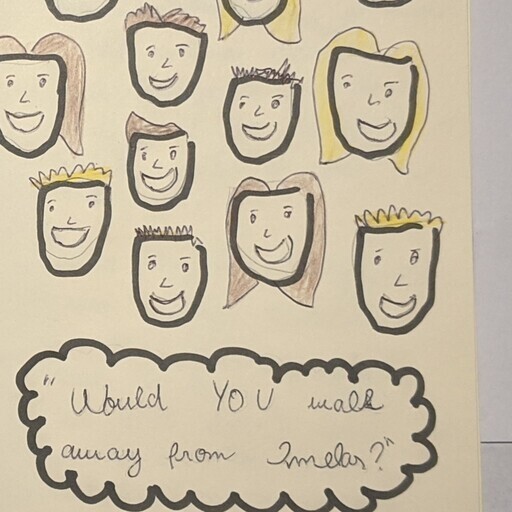 "Would YOU walk
away from Omelas?"